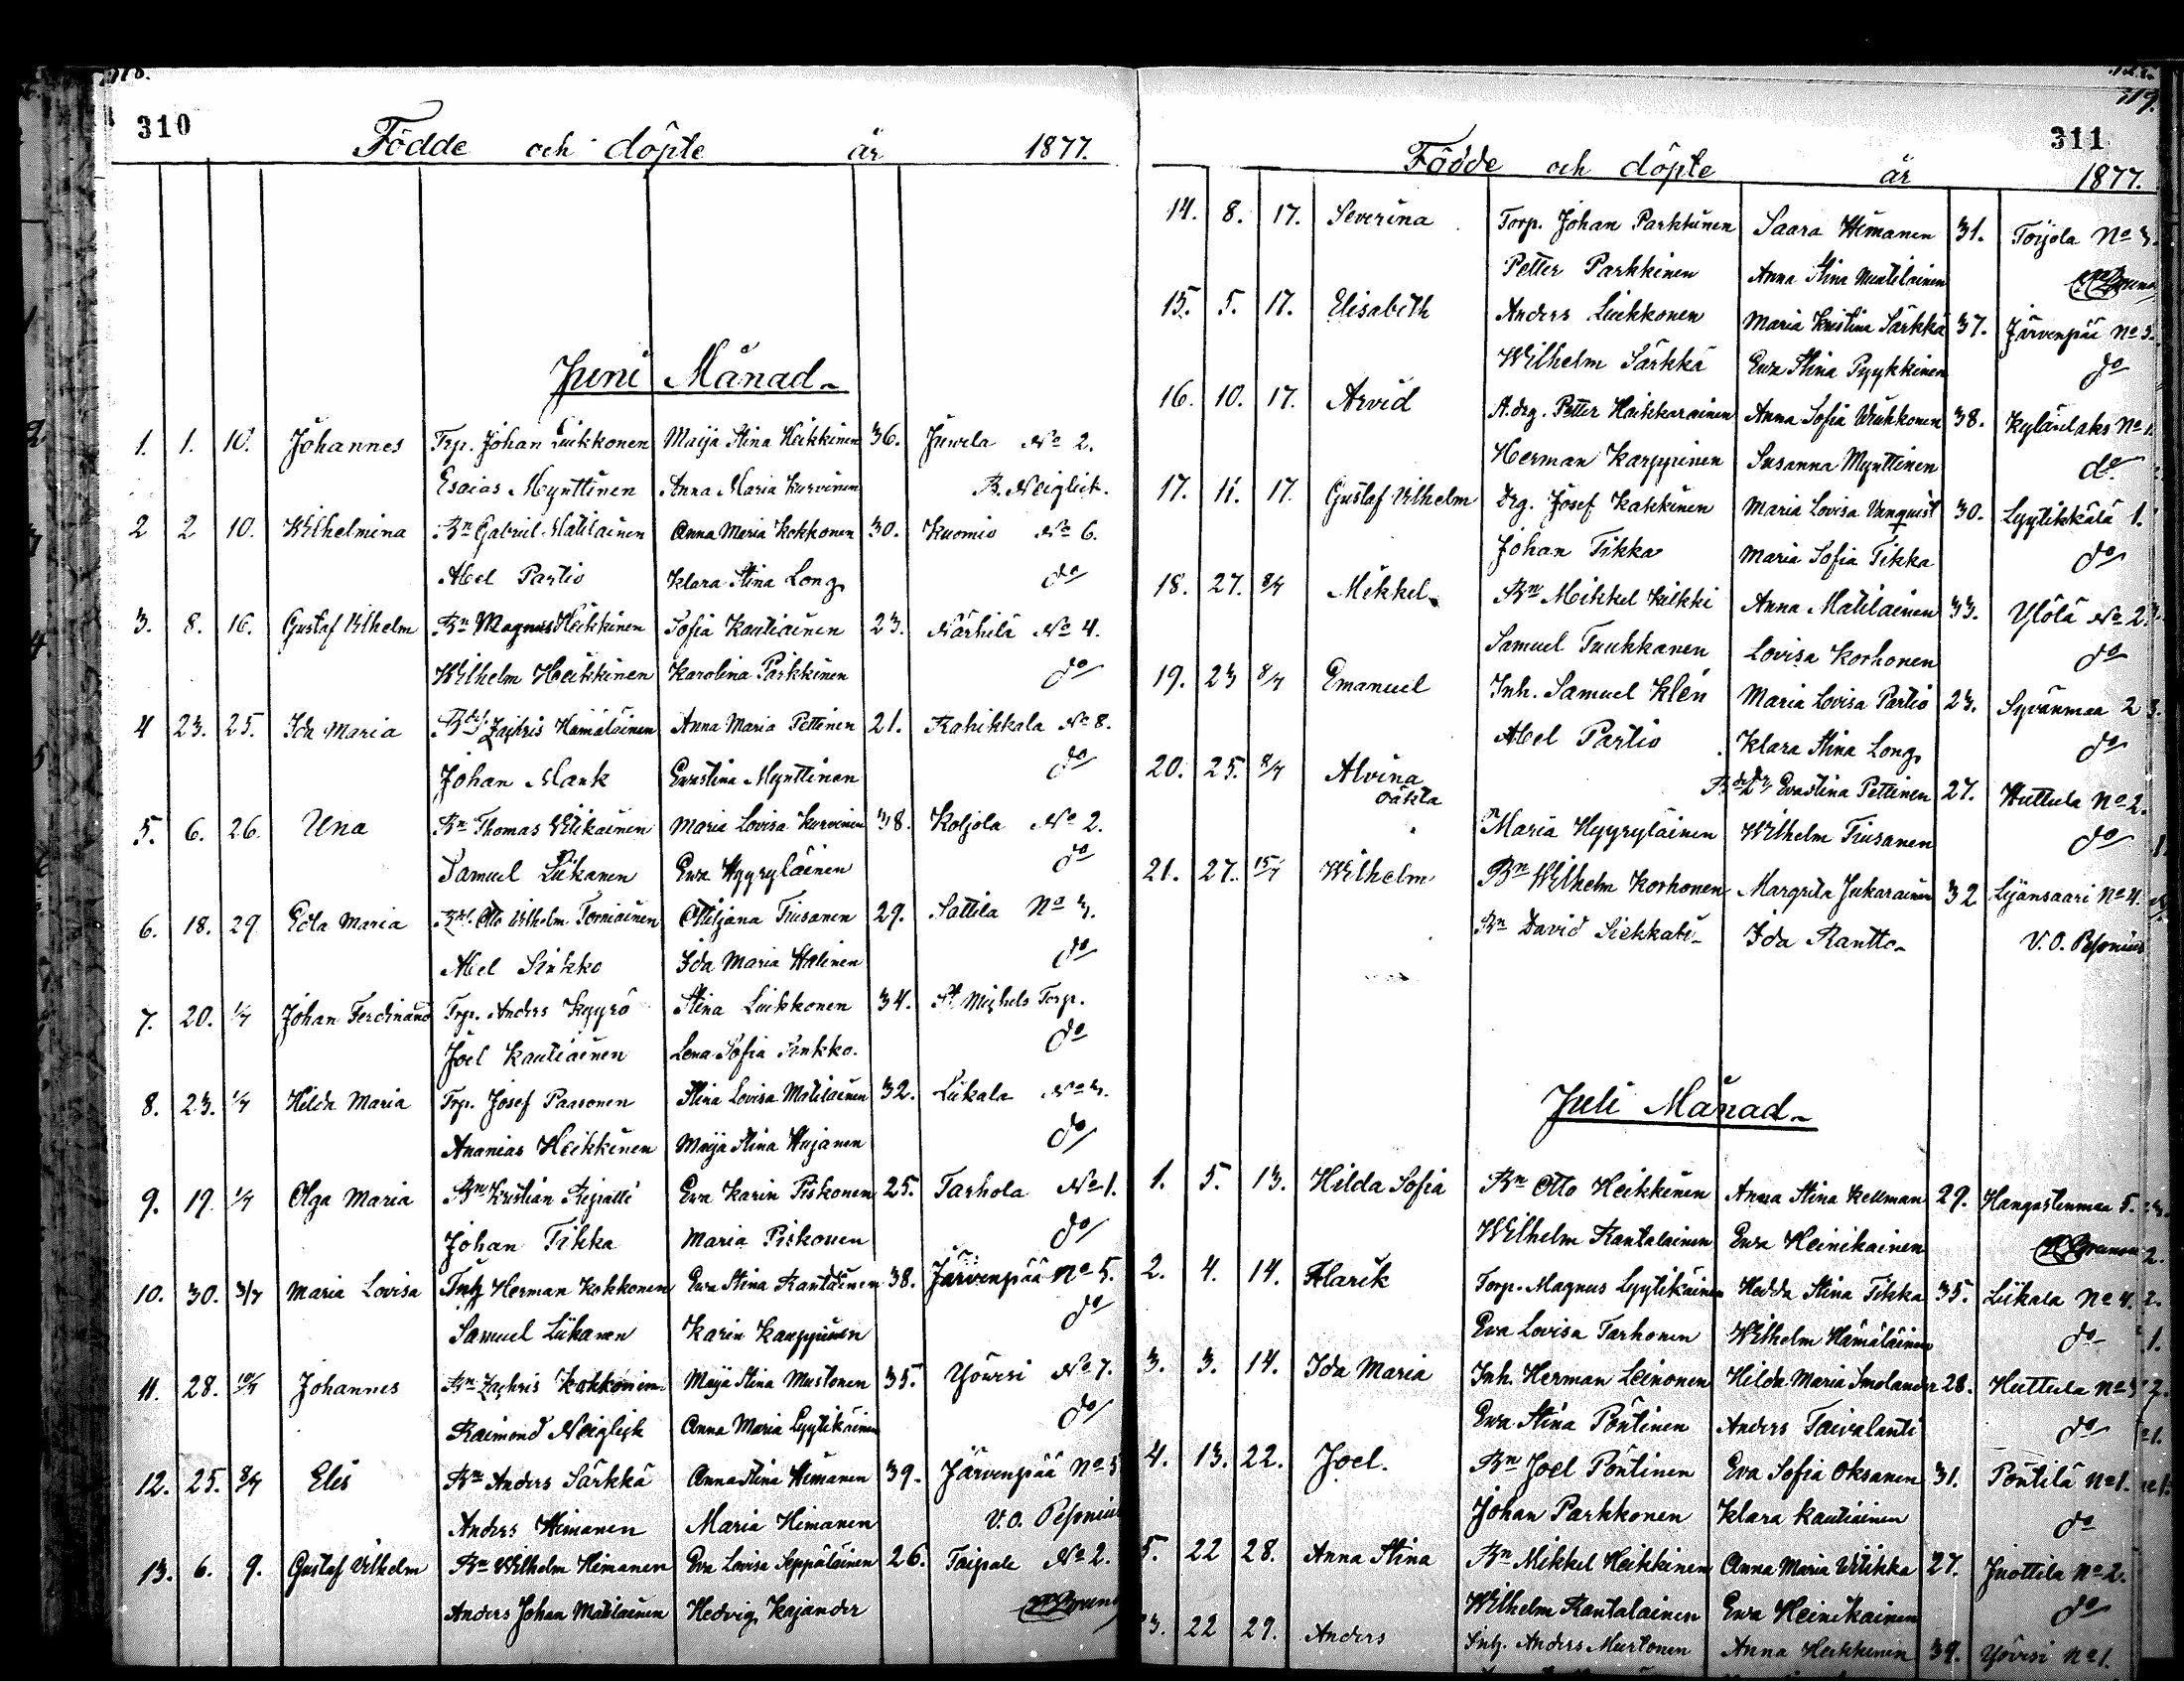 310
Födde och döpte år 1877.
Juni Månad
1. 1. 10. Johannes Trp. Johan Liikkonen Maija Stina Heikkinen 36. Juurla No 2.
Esaias Mynttinen Anna Maria Kurvinen B. Neiglick.
2 2 10. Wilhelmina Bn Gabriel Matilainen Anna Maria Kokkonen 30. Kuomio No 6.
Abel Partio Klara Stina Long do
3. 8. 16. Gustaf Vilhelm Bn Magnus Heikkinen Sofia Kautiainen 23. Närhilä No 4.
Wilhelm Heikkinen Karolina Parkkinen do
4 23. 25. Ida Maria Zachris Hämäläinen Anna Maria Pettinen 21. Rahikkala No 8.
Johan Mank Evastina Mynttinen do
5. 6. 26. Una Bn Thomas Viikainen Maria Lovisa Kurvinen 38. Koljola No 2.
Samuel Liikanen Ewa Hyyryläinen do
6. 18. 29 Edla Maria Otto Vilhelm Torniainen Ottiljana Tiusanen 29. Sattila No 3.
Abel Sinkko Ida Maria Halinen do
7. 20. 1/7 Johan Ferdinand Trp. Anders Kyyrö Stina Liikkonen 34. St Michels Torp.
Joel Kautiainen Lena Sofia Sinkko. do
8. 23. 1/7 Hilda Maria Trp. Josef Paasonen Stina Lovisa Matilainen 32. Liikala No 3.
Ananias Heikkinen Maija Stina Hujanen do
9. 19. 1/7 Olga Maria Bn Kristian Ewa Karin Piskonen 25. Tarhola No 1.
Johan Tikka Maria Piskonen do
10. 30. 3/7 Maria Lovisa Inh Herman Kokkonen Ewa Stina Rantainen 38. Järvenpää No 5.
Samuel Liikanen Karin Karppinen do
11. 28. 10/7 Johannes Bn Zachris Kokkonen Maija Stina Mustonen 35. Yövesi No 7.
Raimond Neiglick Anna Maria Lyytikäinen do
12. 25. 8/7 Elis Bn Anders Särkkä Anna Stina Himanen 39. Järvenpää No 5
Anders Himanen Maria Himanen V. O. Pesonius
13. 6. 9. Gustaf Vilhelm Bn Wilhelm Himanen Eva Lovisa Seppäläinen 26. Taipale No 2.
Anders Johan Matilainen Hedvig Kajander
311
Födde och döpte år 1877.
14. 8. 17. Severina Torp. Johan Parkkinen Saara Himanen 31. Toijola No 3.
Petter Parkkinen Anna Stina Muutilainen
15. 5. 17. Elisabeth Anders Liikkonen Maria Kristina Särkkä 37. Järvenpää No 5.
Wilhelm Särkkä Ewa Stina Pyykkinen do
16. 10. 17. Arvid A.drg. Petter Heikkarainen Anna Sofia Uhkkonen 38. Kylänlaks No 1.
Herman Karppinen Susanna Mynttinen do
17. 11. 17. Gustaf Vilhelm Drg. Josef Kakkinen Maria Lovisa 30. Lyytikkälä 1.
Johan Tikka Maria Sofia Tikka do
18. 27. 8/7 Mikkel Bn Mikkel Kilkki Anna Matilainen 33. Ylölä No 2.
Samuel Tuukkanen Lovisa Korhonen do
19. 23 8/7 Emanuel Inh. Samuel Klén Maria Lovisa Partio 23. Syvänmaa 2
Abel Partio Klara Stina Long do
20. 25. 8/7 Alvina oäkta Bde Dr Evastina Pettinen 27. Huttula No 2.
Maria Hyyryläinen Wilhelm Tiusanen do
21. 27. 15/7 Wilhelm Bn Wilhelm Korhonen Margreta Jukarainen 32 Liiansaari No 4.
Bn David Siekkala Ida Rantto V. O. Pesonius
Juli Månad
1. 5. 13. Hilda Sofia Bn Otto Heikkinen Anna Stina Kellman 29. Hangastenmaa 5.
Wilhelm Rantalainen Ewa Heinikainen
2. 4. 14. Alarik Torp. Magnus Lyytikäinen Hedda Stina Tikka 35. Liikala No 4.
Eva Lovisa Tarhonen Wilhelm Hämäläinen do
3. 3. 14. Ida Maria Inh. Herman Leinonen Hilda Maria Smolander 28. Huttula No 3
Ewa Stina Pöntinen Anders Taivalanti do
4. 13. 22. Joel. Bn Joel Pöntinen Eva Sofia Oksanen 31. Pöntilä No 1.
Johan Parkkonen Klara Kautiainen do
5. 22 28. Anna Stina Bn Mikkel Heikkinen Anna Maria Viikka 27. Juottila No 2.
Wilhelm Rantalainen Ewa Heinikainen do
22 29. Anders Inh. Anders Murtonen Anna Heikkinen 39. Yövesi No 1.